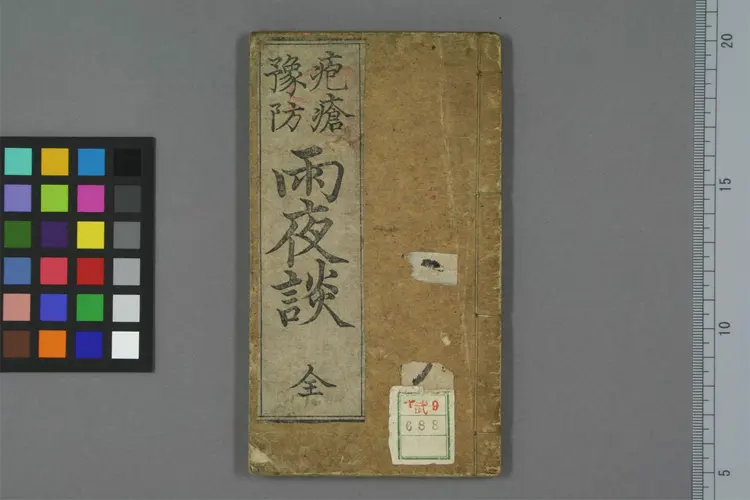 疱瘡
豫防
雨夜談
全
武9
688
20
15
10
5